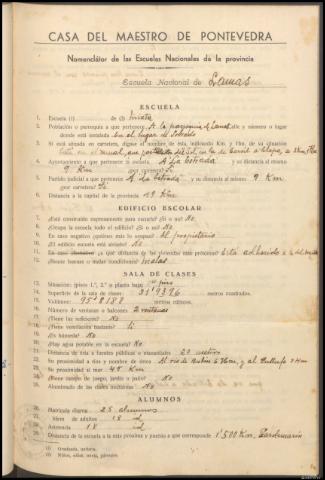 CASA DEL MAESTRO DE PONTEVEDRA
Nomenclátor de las Escuelas Nacionales de la provincia
Escuela Nacional de Lamas
ESCUELA
1. Escuela (1) de (2) Mixta
2. Población o parroquia a que pertenece A la parroquia de Lamas calle y número o lugar
donde está instalada en el lugar de
3. Si está situada en carretera, dígase el nombre de ésta, indicando Km. y Hm. de su situación
4. Ayuntamiento a que pertenece la escuela A La Estrada y su distancia al mismo
9 Km (por carretera) Sí
5. Partido judicial a que pertenece A La Estrada y su distancia al mismo 9 Km
(por carretera) Sí
6. Distancia a la capital de la provincia 19 Km
EDIFICIO ESCOLAR
7. ¿Está construido expresamente para escuela? (Sí o no) No
8. ¿Ocupa la escuela todo el edificio? (Sí o no) No
9. En caso negativo ¿quiénes más lo ocupan? El propietario
10. ¿El edificio escuela está aislado? No
11. En caso ¿a qué distancia de las viviendas más próximas? Está adherido a la
12. ¿Reúne buenas o malas condiciones? Malas
SALA DE CLASES
13. Situación: (pisos 1.º, 2.º o planta baja) 1º piso
14. Superficie de la sala de clase: 31'9396 metros cuadrados.
15. Volúmen: 95'8188 metros cúbicos.
16. Número de ventanas o balcones 2 ventanas
17. ¿Tiene luz suficiente? No
18. ¿Tiene ventilación bastante? Sí
19. ¿Es húmeda? No
20. ¿Hay agua potable en la escuela? No
21. Distancia de ésta a fuentes públicas o manantiales 20 metros
22. Su proximidad a ríos o montes
23. Su proximidad al mar 45 Km
24. ¿Tiene campo de juego, jardín o patio? No
25. Alumbrado de las clases nocturnas No
ALUMNOS
26. Matrícula diurna 25 alumnos
27. Idem de adultos 18 id
28. Asistencia 18 id
29. Distancia de la escuela a la más próxima y pueblo a que corresponde 1'500 Km.
(1) Graduada, unitaria.
(2) Niños, niñas, mixta, párvulos.